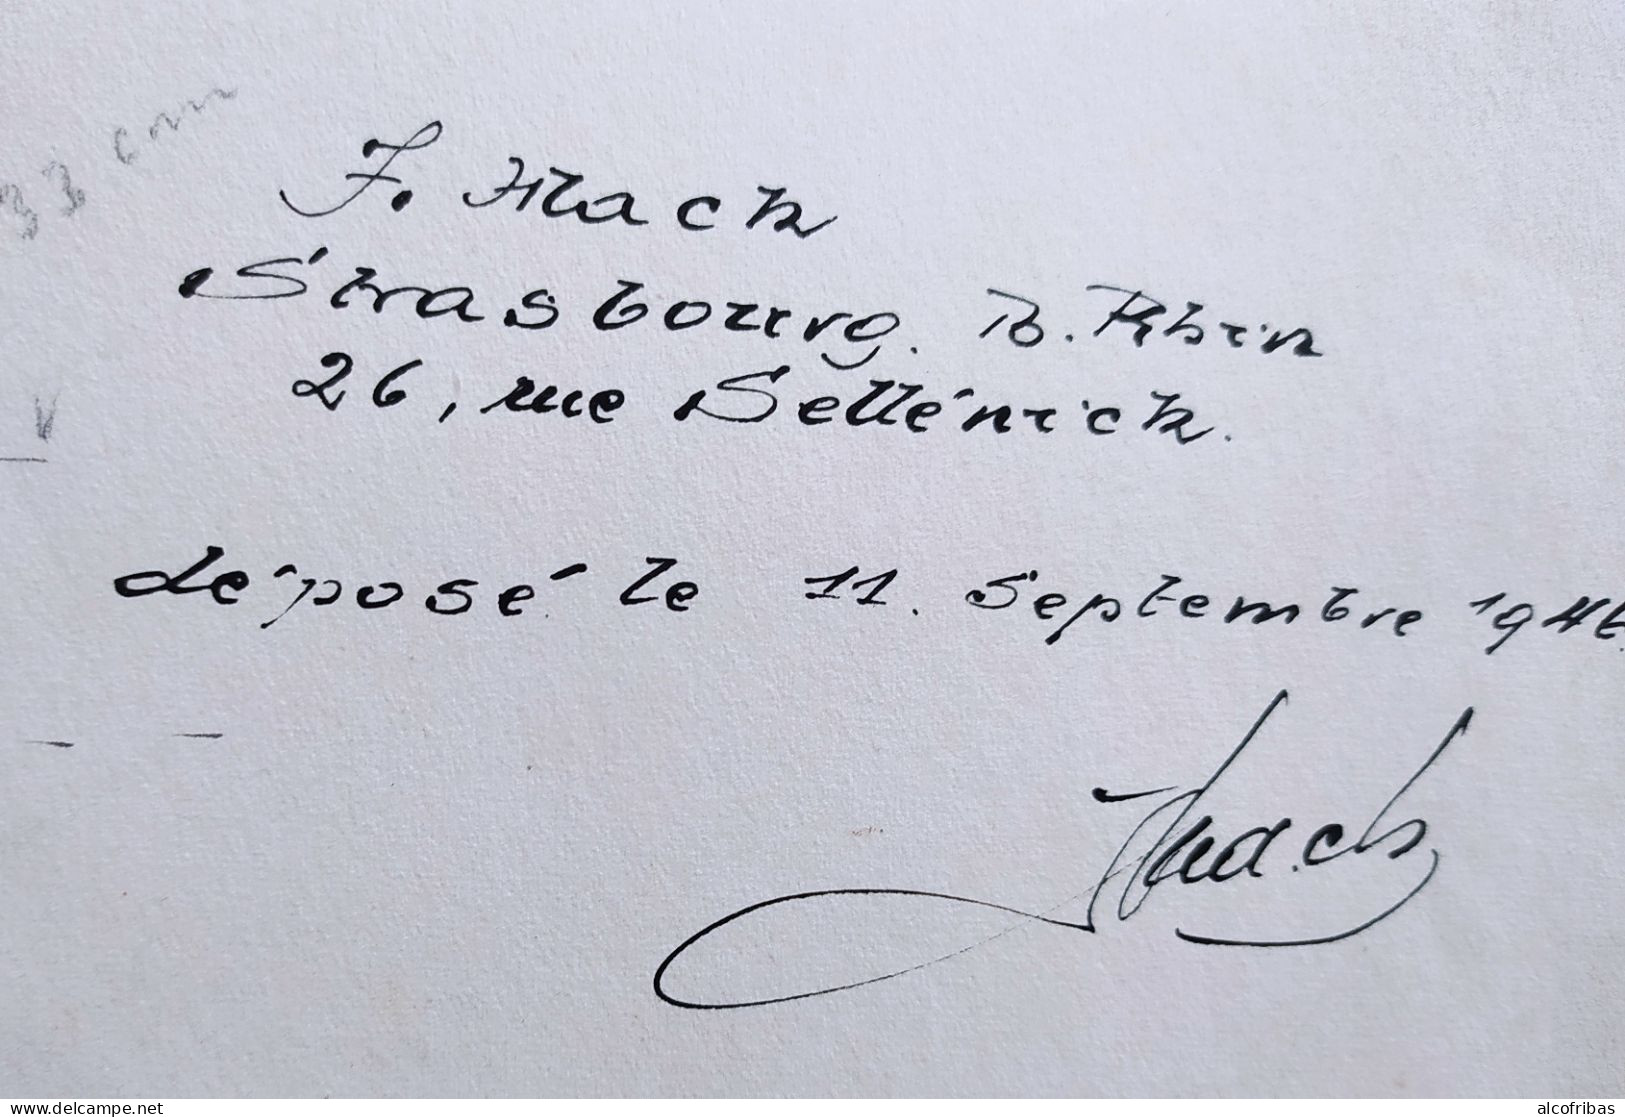 33 cm
J. Mack
Strasbourg. B. Rhin
26, rue Sellénick.
déposé le 11. Septembre 1946.
Mack
www.delcampe.net
alcofribas